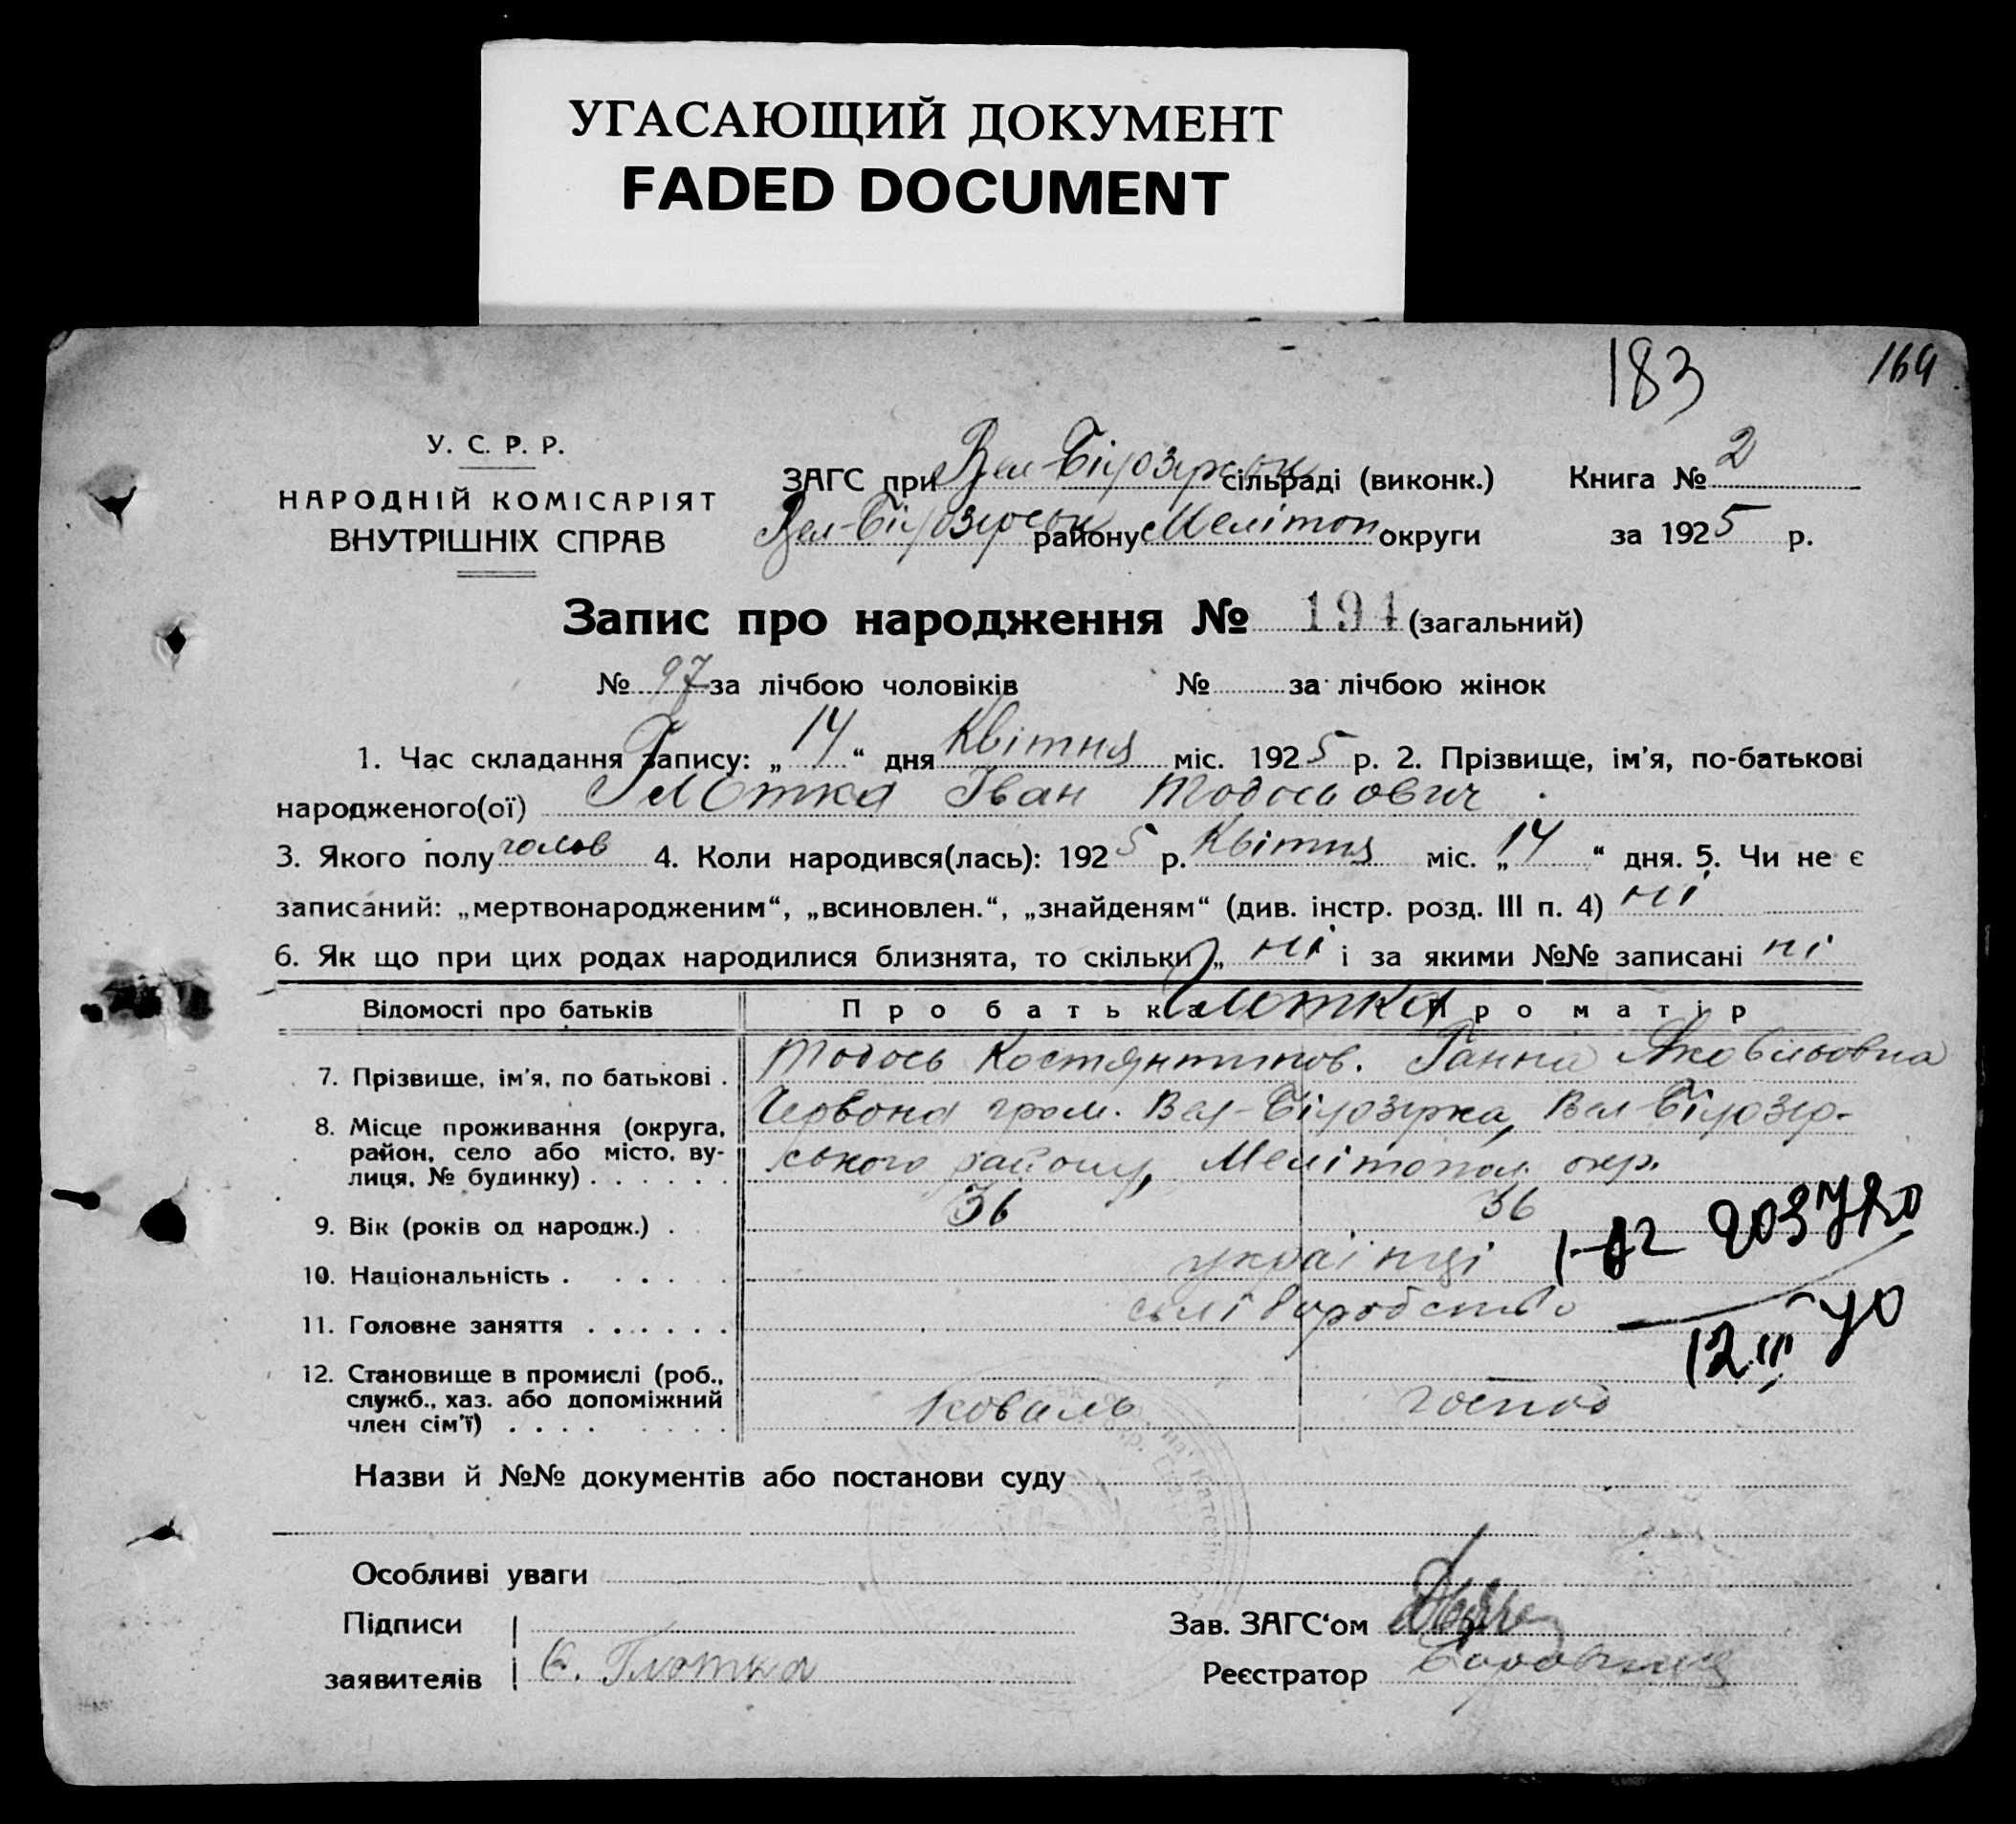 УГАСАЮЩИЙ ДОКУМЕНТ
FADED DOCUMENT
183 164
У. С. Р. Р.
НАРОДНІЙ КОМІСАРІЯТ
ВНУТРІШНІХ СПРАВ
ЗАГС при Вел-Білозерськ сільраді (виконк.) Книга № 2
Вел-Білозерськ району Мелітоп округи за 1925 р.
Запис про народження № 194 (загальний)
№ 97 за лічбою чоловіків № за лічбою жінок
1. Час складання запису: „ 14 “ дня Квітня міс. 1925 р. 2. Прізвище, ім’я, по-батькові
народженого(ої) Глотка Іван Тодосьович
3. Якого полу чолов 4. Коли народився(лась): 1925 р. Квітня міс. „ 14 “ дня. 5. Чи не є
записаний: „мертвонародженим“, „всиновлен.“, „знайденям“ (див. інстр. розд. III п. 4) ні
6. Як що при цих родах народилися близнята, то скільки „ ні і за якими №№ записані ні
Відомості про батьків Про батька Про матір
Глотка
7. Прізвище, ім’я, по батькові . Тодось Костянтинов. Ганна Яковльовна
8. Місце проживання (округа, район, село або місто, вулиця, № будинку) . . . . . . Червона гром. Вел-Білозірка, Вел Білозер-
ського району, Мелітопол. окр.
9. Вік (років од народж.) . 36 36
10. Національність . . . . . . українці
11. Головне заняття . . . . . . сільгоробство
12. Становище в промислі (роб., служб., хаз. або допоміжний член сім’ї) . . . . Коваль господ
12 III 70
Назви й №№ документів або постанови суду
Особливі уваги
Підписи заявителів Є. Глотка
Зав. ЗАГС‘ом
Реєстратор